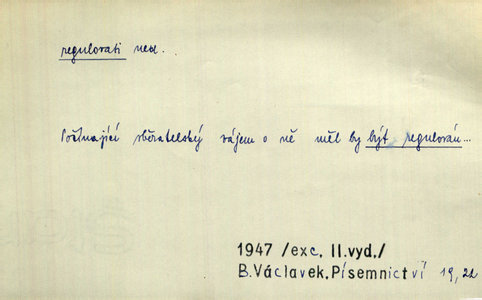 regulovati ned.
Počínající sběratelský zájem o ně měl by být regulován...
1947 /exc. II.vyd./
B.Václavek,Písemnictví 19,22